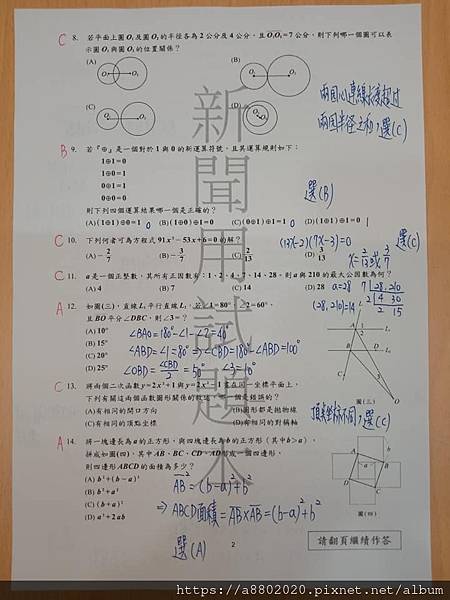 C 8. 若平面上圓O₁及圓O₂的半徑各為2公分及4公分，且O₁O₂=7公分，則下列哪一個圖可以表
示圖O₁與圓O₂的位置關係？
(A) (B)
(C) (D)
兩圓心連線長度超過
兩圓半徑之和，選(C)
B 9. 若『⊕』是一個對於1與0的新運算符號，且其運算規則如下：
1⊕1=0
1⊕0=1
0⊕1=1
0⊕0=0
選(B)
則下列四個運算結果哪一個是正確的？
(A) (1⊕1)⊕0=1 0 (B) (1⊕0)⊕1=0 (C) (0⊕1)⊕1=1 0 (D) (1⊕1)⊕1=0 1
C 10. 下列何者可為方程式91x²−53x+6=0的解？
(13x−2)(7x−3)=0
選(C)
(A) −2/7 (B) −3/7 (C) 2/13 (D) 3/13
x=2/13或3/7
C 11. a是一個正整數，其所有正因數有：1、2、4、7、14、28。則a與210的最大公因數為何？
(A) 4 (B) 7 (C) 14 (D) 28 a=28
(28, 210)=14
A 12. 如圖(三)，直線L₁平行直線L₂，若∠1=80°，∠2=60°，
且BO平分∠DBC，則∠3=？
(A) 10° ∠BAO=180°−∠1−∠2=40°
(B) 15°
(C) 20° ∠ABD=∠1=80° ⇒ ∠CBD=180°−∠ABD=100°
(D) 25° ∠OBD=∠CBD/2=50° ∠3=10°
圖(三)
C 13. 將兩個二次函數y=2x²+1與y=2x²−1畫在同一坐標平面上，
下列有關這兩個函數圖形關係的敘述，哪一個是錯誤的？
(A)有相同的開口方向 (B)圖形都是拋物線
(C)有相同的頂點坐標 (D)有相同的對稱軸
頂點坐標不同，選(C)
A 14. 將一塊邊長為a的正方形，與四塊邊長為b的正方形（其中b>a），
拼成如圖(四)，其中AB、BC、CD、AD形成一個四邊形，
則四邊形ABCD的面積為多少？
(A) b²+(b−a)² AB²=(b−a)²+b²
(B) b²+a²
(C) (b+a)² ⇒ABCD面積=AB×AB=(b−a)²+b²
(D) a²+2ab
選(A)
圖(四)
2
請翻頁繼續作答
新聞用試題本
https://a8802020.pixnet.net/album